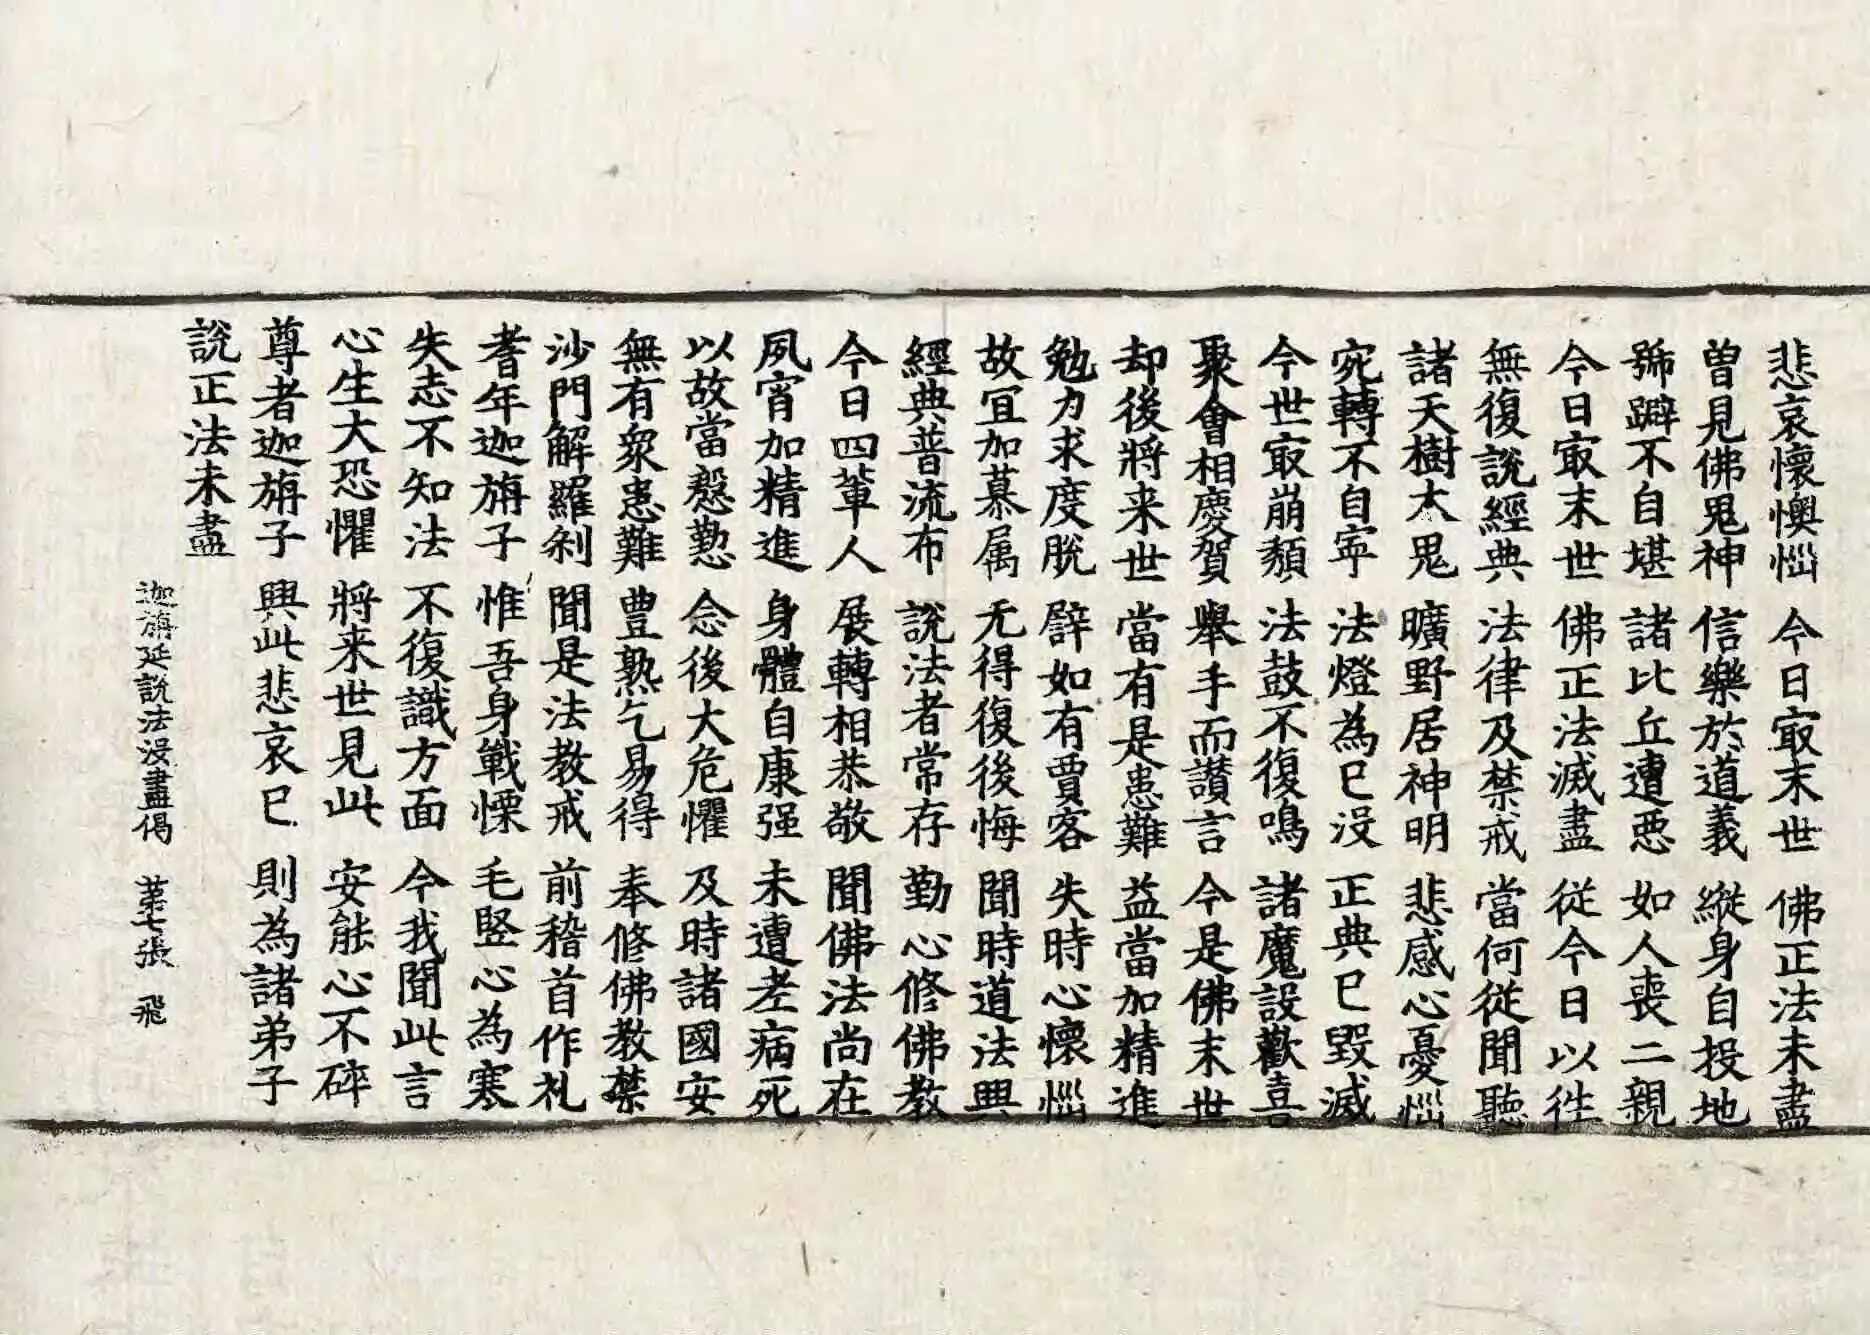 悲哀懷懊惱 今日冣末世 佛正法未盡
曽見佛鬼神 信樂於道義 縱身自投地
號躃不自堪 諸比丘遭惡 如人喪二親
今日冣末世 佛正法滅盡 從今日以徃
無復說經典 法律及禁戒 當何從聞聽
諸天樹大鬼 曠野居神明 悲感心憂惱
宛轉不自寧 法燈為已没 正典已毀滅
今世冣崩頽 法鼓不復鳴 諸魔設歡喜
聚會相慶賀 舉手而讃言 今是佛末世
却後將来世 當有是患難 益當加精進
勉力求度脫 譬如有賈客 失時心懷惱
故冝加慕属 无得復後悔 聞時道法興
經典普流布 說法者常存 勤心修佛教
今日四軰人 展轉相恭敬 聞佛法尚在
夙宵加精進 身體自康强 未遭老病死
以故當慇懃 念後大危懼 及時諸國安
無有衆患難 豊熟乞易得 奉修佛教禁
沙門解羅刹 聞是法教戒 前稽首作礼
耆年迦旃子 惟吾身戰慄 毛竪心為寒
失志不知法 不復識方面 今我聞此言
心生大恐懼 將来世見此 安能心不碎
尊者迦旃子 興此悲哀已 則為諸弟子
說正法未盡
迦旃延說法没盡偈 苐七張 飛